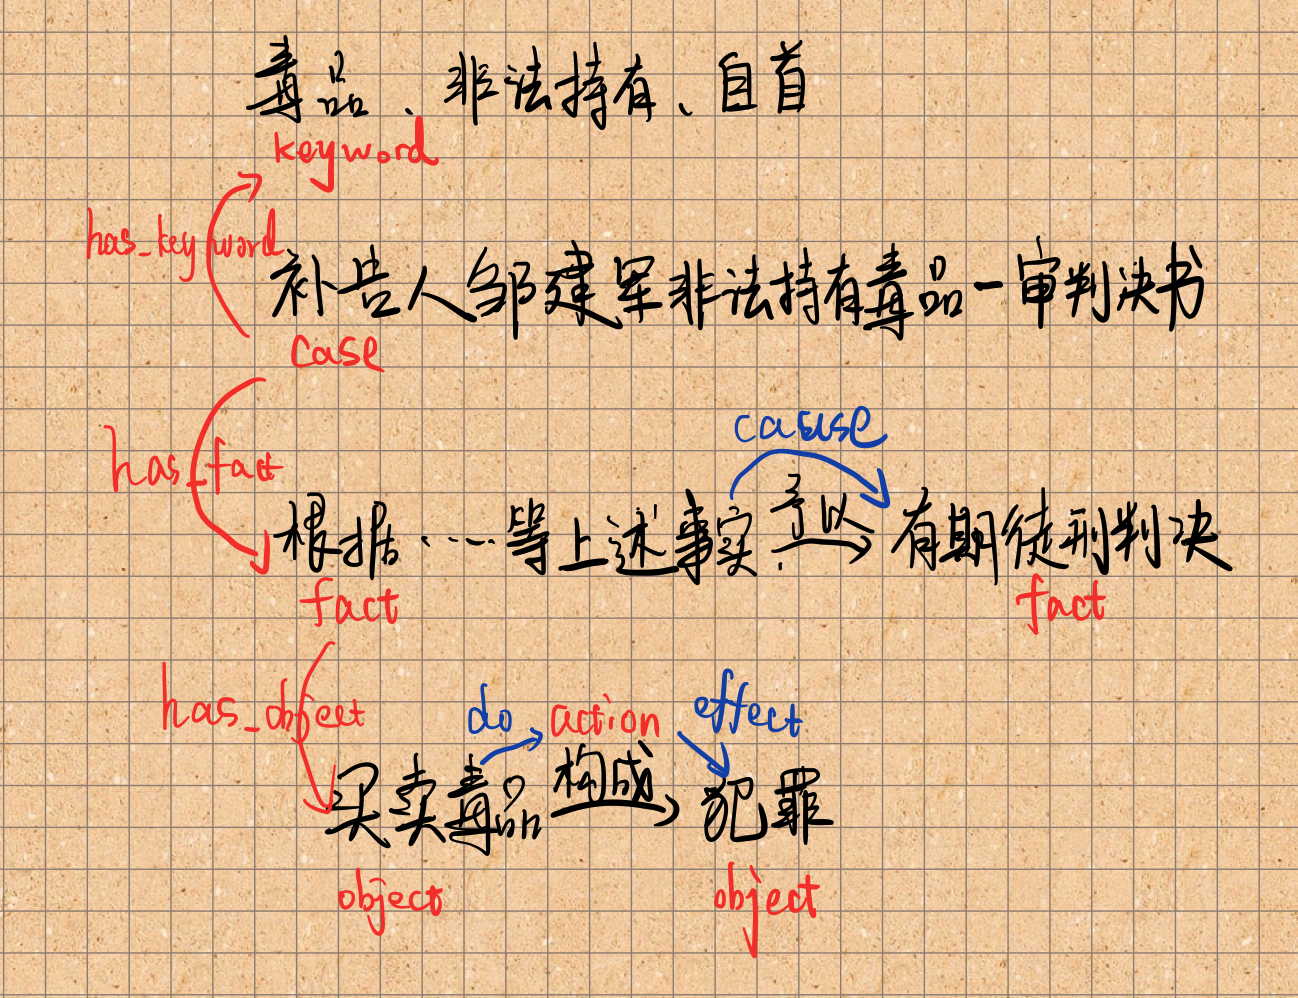 毒品、非法持有、自首
keyword
has_keyword
补告人邹建军非法持有毒品一审判决书
case
cause
has_fact
根据……等上述事实 予以 有期徒刑判决
fact
fact
has_object
do action effect
买卖毒品 构成 犯罪
object
object